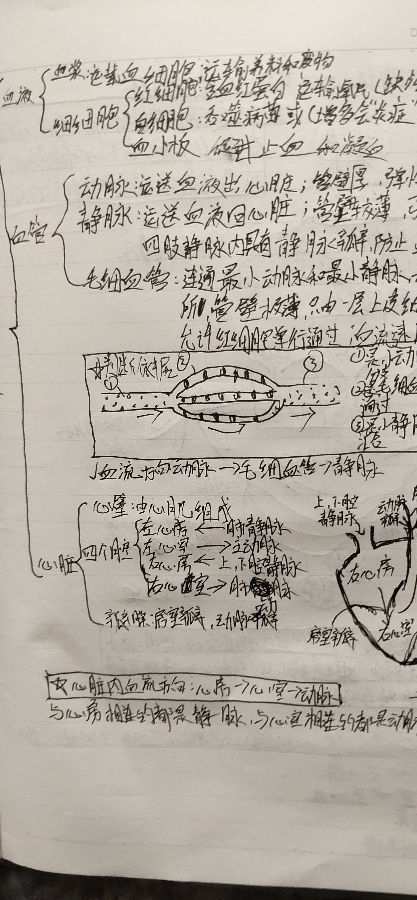 血液
血浆:运载血细胞,运输养料和废物
血细胞
红细胞:含血红蛋白 运输氧气(缺
白细胞:吞噬病菌 (增多会炎症
血小板 止血和凝血
血管
动脉:运送血液出心脏;管壁厚,弹
静脉:运送血液回心脏;管壁较薄,
四肢静脉内具有静脉瓣,防止
毛细血管:连通最小动脉和最小静脉
所,管壁极薄,只由一层上皮细
允许红细胞单行通过 血流速
① ② ③
①是小动
②是毛细血
③是小静脉
血流方向动脉→毛细血管→静脉
心脏
心壁:由心肌组成
四个腔
左心房←肺静脉
左心室→主动脉
右心房←上,下腔静脉
右心室→肺动脉
瓣膜:房室瓣,动脉瓣
上,下腔静脉
动脉瓣
右心房
房室瓣
右心室
心脏内血流方向:心房→心室→动脉
与心房相连的都是静脉,与心室相连的都是动脉